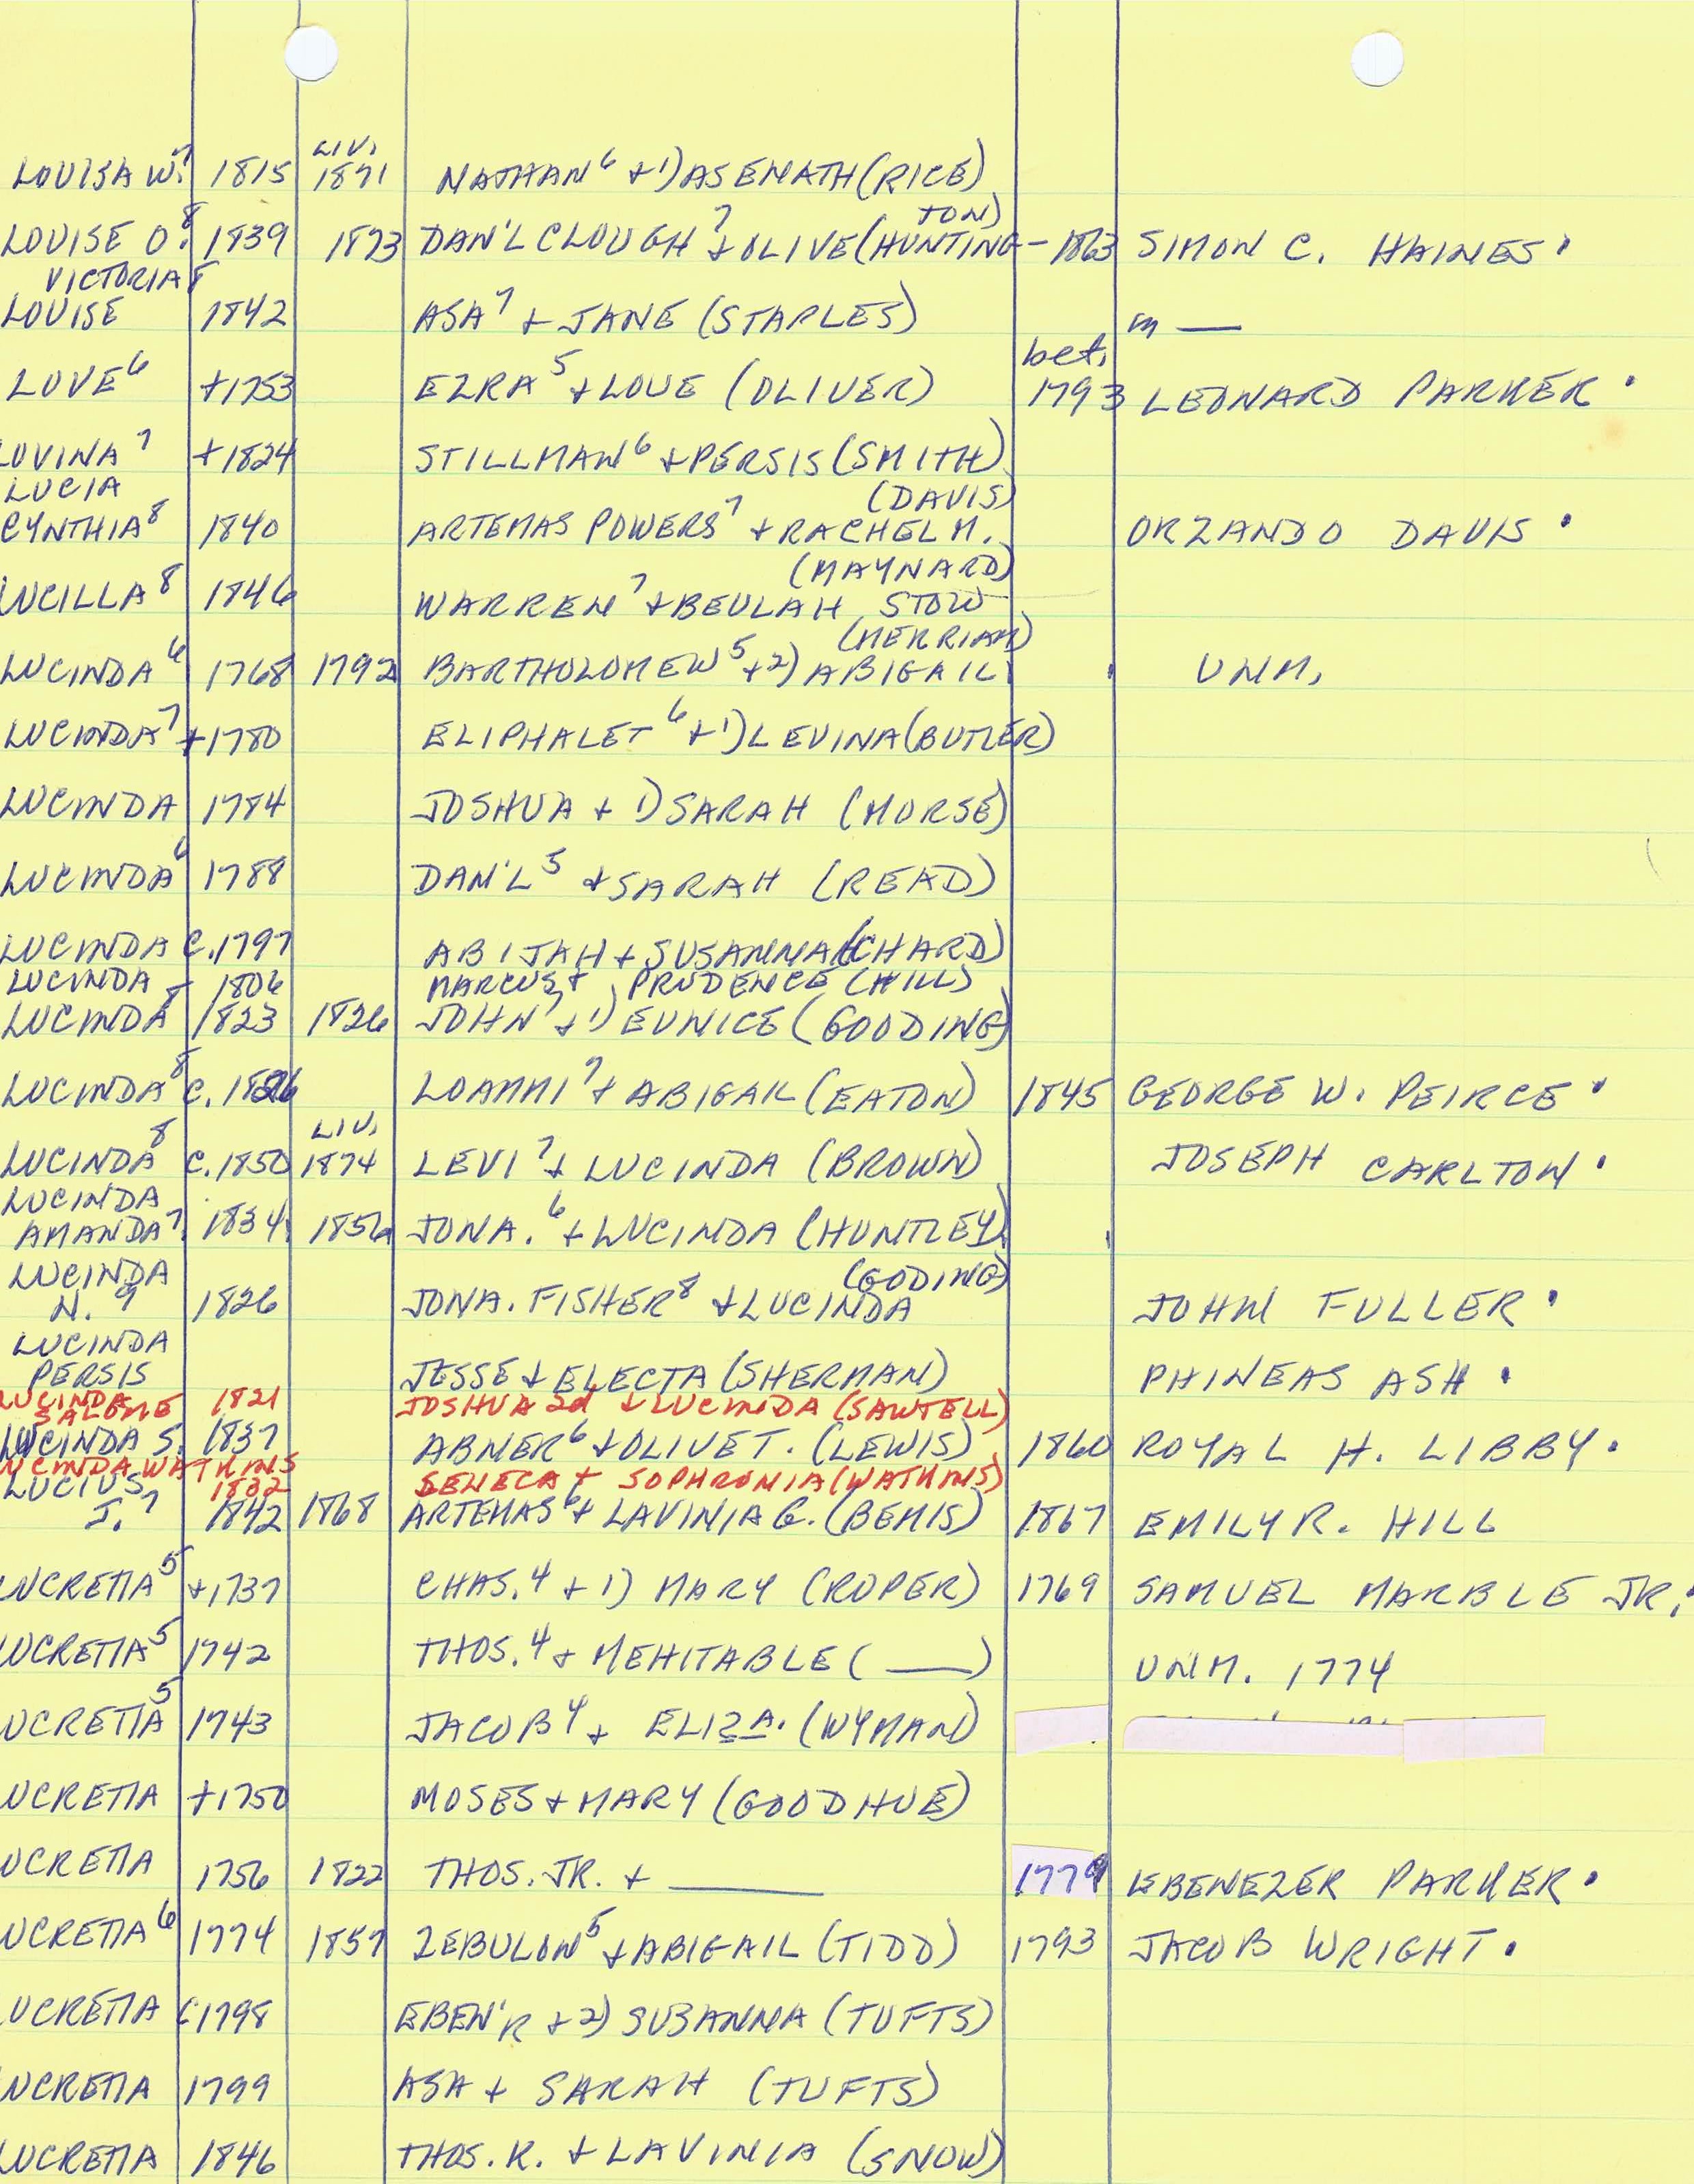 LIV.
LOUISA W.7 1815 1871 NATHAN6 + 1) ASENATH (RICE)
TON)
LOUISE O.8 1839 1873 DAN'L CLOUGH7 + OLIVE (HUNTING- 1863 SIMON C. HAINES.
VICTORIA8
LOUISE 1842 ASA7 + JANE (STAPLES) m —
bet.
LOVE6 +1753 EZRA5 + LOVE (OLIVER) 1793 LEONARD PARKER.
LOVINA7 +1824 STILLMAN6 + PERSIS (SMITH)
LUCIA (DAVIS)
CYNTHIA8 1840 ARTEMAS POWERS7 + RACHEL M. ORZANDO DAVIS.
(MAYNARD)
LUCILLA8 1846 WARREN7 + BEULAH STOW
(MERRIAM)
LUCINDA6 1768 1792 BARTHOLOMEW5 + 2) ABIGAIL UNM.
LUCINDA7 +1780 ELIPHALET6 + 1) LEVINA (BUTLER)
LUCINDA 1784 JOSHUA + 1) SARAH (MORSE)
LUCINDA6 1788 DAN'L5 + SARAH (READ)
LUCINDA C.1797 ABIJAH + SUSANNAH (CHARD)
LUCINDA 1806 MARCUS + PRUDENCE (HILLS)
LUCINDA8 1823 1826 JOHN7 + 1) EUNICE (GOODING)
LUCINDA8 C. 1826 LOAMMI7 + ABIGAIL (EATON) 1845 GEORGE W. PEIRCE.
LIV.
LUCINDA8 C.1850 1874 LEVI7 + LUCINDA (BROWN) JOSEPH CARLTON.
LUCINDA
AMANDA7 1834 1856 JONA.6 + LUCINDA (HUNTLEY)
LUCINDA (GODING)
N.9 1826 JONA. FISHER8 + LUCINDA JOHN FULLER.
LUCINDA
PERSIS JESSE + ELECTA (SHERMAN) PHINEAS ASH.
LUCINDA
SALOME 1821 JOSHUA 2d + LUCINDA (SAWTELL)
LUCINDA S. 1837 ABNER6 + OLIVE T. (LEWIS) 1860 ROYAL H. LIBBY.
LUCINDA WATKINS 1832 SENECA + SOPHRONIA (WATKINS)
LUCIUS
J.7 1842 1868 ARTEMAS6 + LAVINIA G. (BEMIS) 1867 EMILY R. HILL
LUCRETIA5 +1737 CHAS.4 + 1) MARY (ROPER) 1769 SAMUEL MARBLE JR.
LUCRETIA5 1742 THOS.4 + MEHITABLE (___) UNM. 1774
LUCRETIA5 1743 JACOB4 + ELIZA. (WYMAN)
LUCRETIA +1750 MOSES + MARY (GOODHUE)
LUCRETIA 1756 1822 THOS. JR. + ______ 1779 EBENEZER PARKER.
LUCRETIA6 1774 1857 ZEBULON5 + ABIGAIL (TIDD) 1793 JACOB WRIGHT.
LUCRETIA C1798 EBEN'R + 2) SUSANNA (TUFTS)
LUCRETIA 1799 ASA + SARAH (TUFTS)
LUCRETIA 1846 THOS. R. + LAVINIA (SNOW)